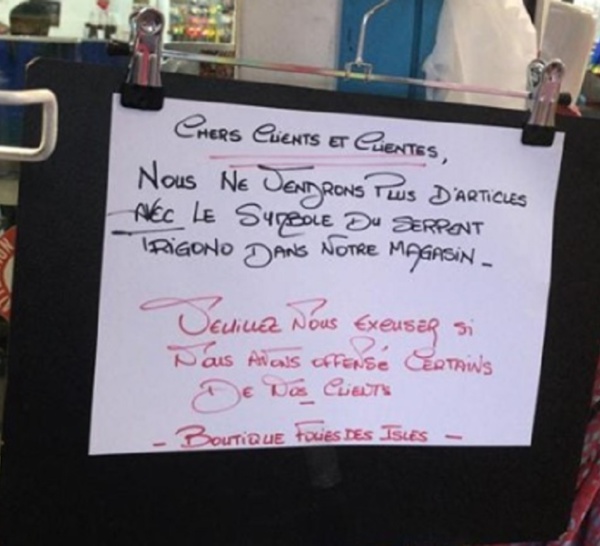 CHERS CLIENTS ET CLIENTES,
NOUS NE VENDRONS PLUS D'ARTICLES
AVEC LE SYMBOLE DU SERPENT
TRIGONO DANS NOTRE MAGASIN -
VEUILLEZ NOUS EXCUSER SI
NOUS AVONS OFFENSÉ CERTAINS
DE NOS CLIENTS
- BOUTIQUE FOLIES DES ISLES -